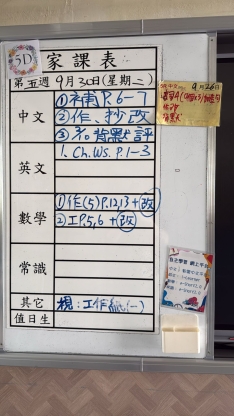 5D
家課表
第五週 9月30日(星期二)
中文
①補P.6-7
②作、抄改
③
背默評
英文
1. Ch.Ws. P.1-3
數學
①作(5)P.12,13+改
②工P.5,6 +改
常識
其它
視:工作紙(一)
值日生
9月26日
自主學習 網上平台